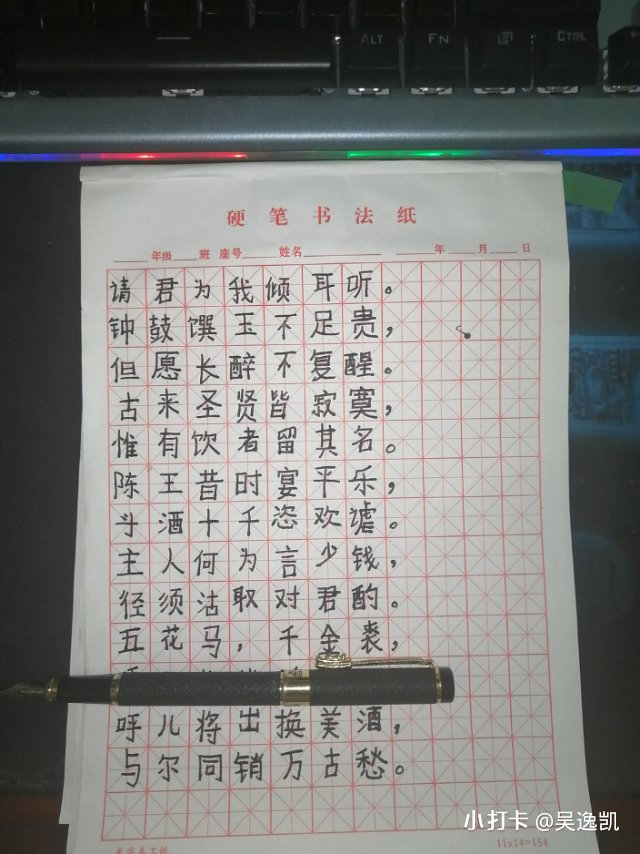 ALT FN CTRL
硬笔书法纸
年级 班 座号 姓名 年 月 日
请君为我倾耳听。
钟鼓馔玉不足贵，
但愿长醉不复醒。
古来圣贤皆寂寞，
惟有饮者留其名。
陈王昔时宴平乐，
斗酒十千恣欢谑。
主人何为言少钱，
径须沽取对君酌。
五花马，千金裘，
呼儿将出换美酒，
与尔同销万古愁。
11x14=154
小打卡 @吴逸凯